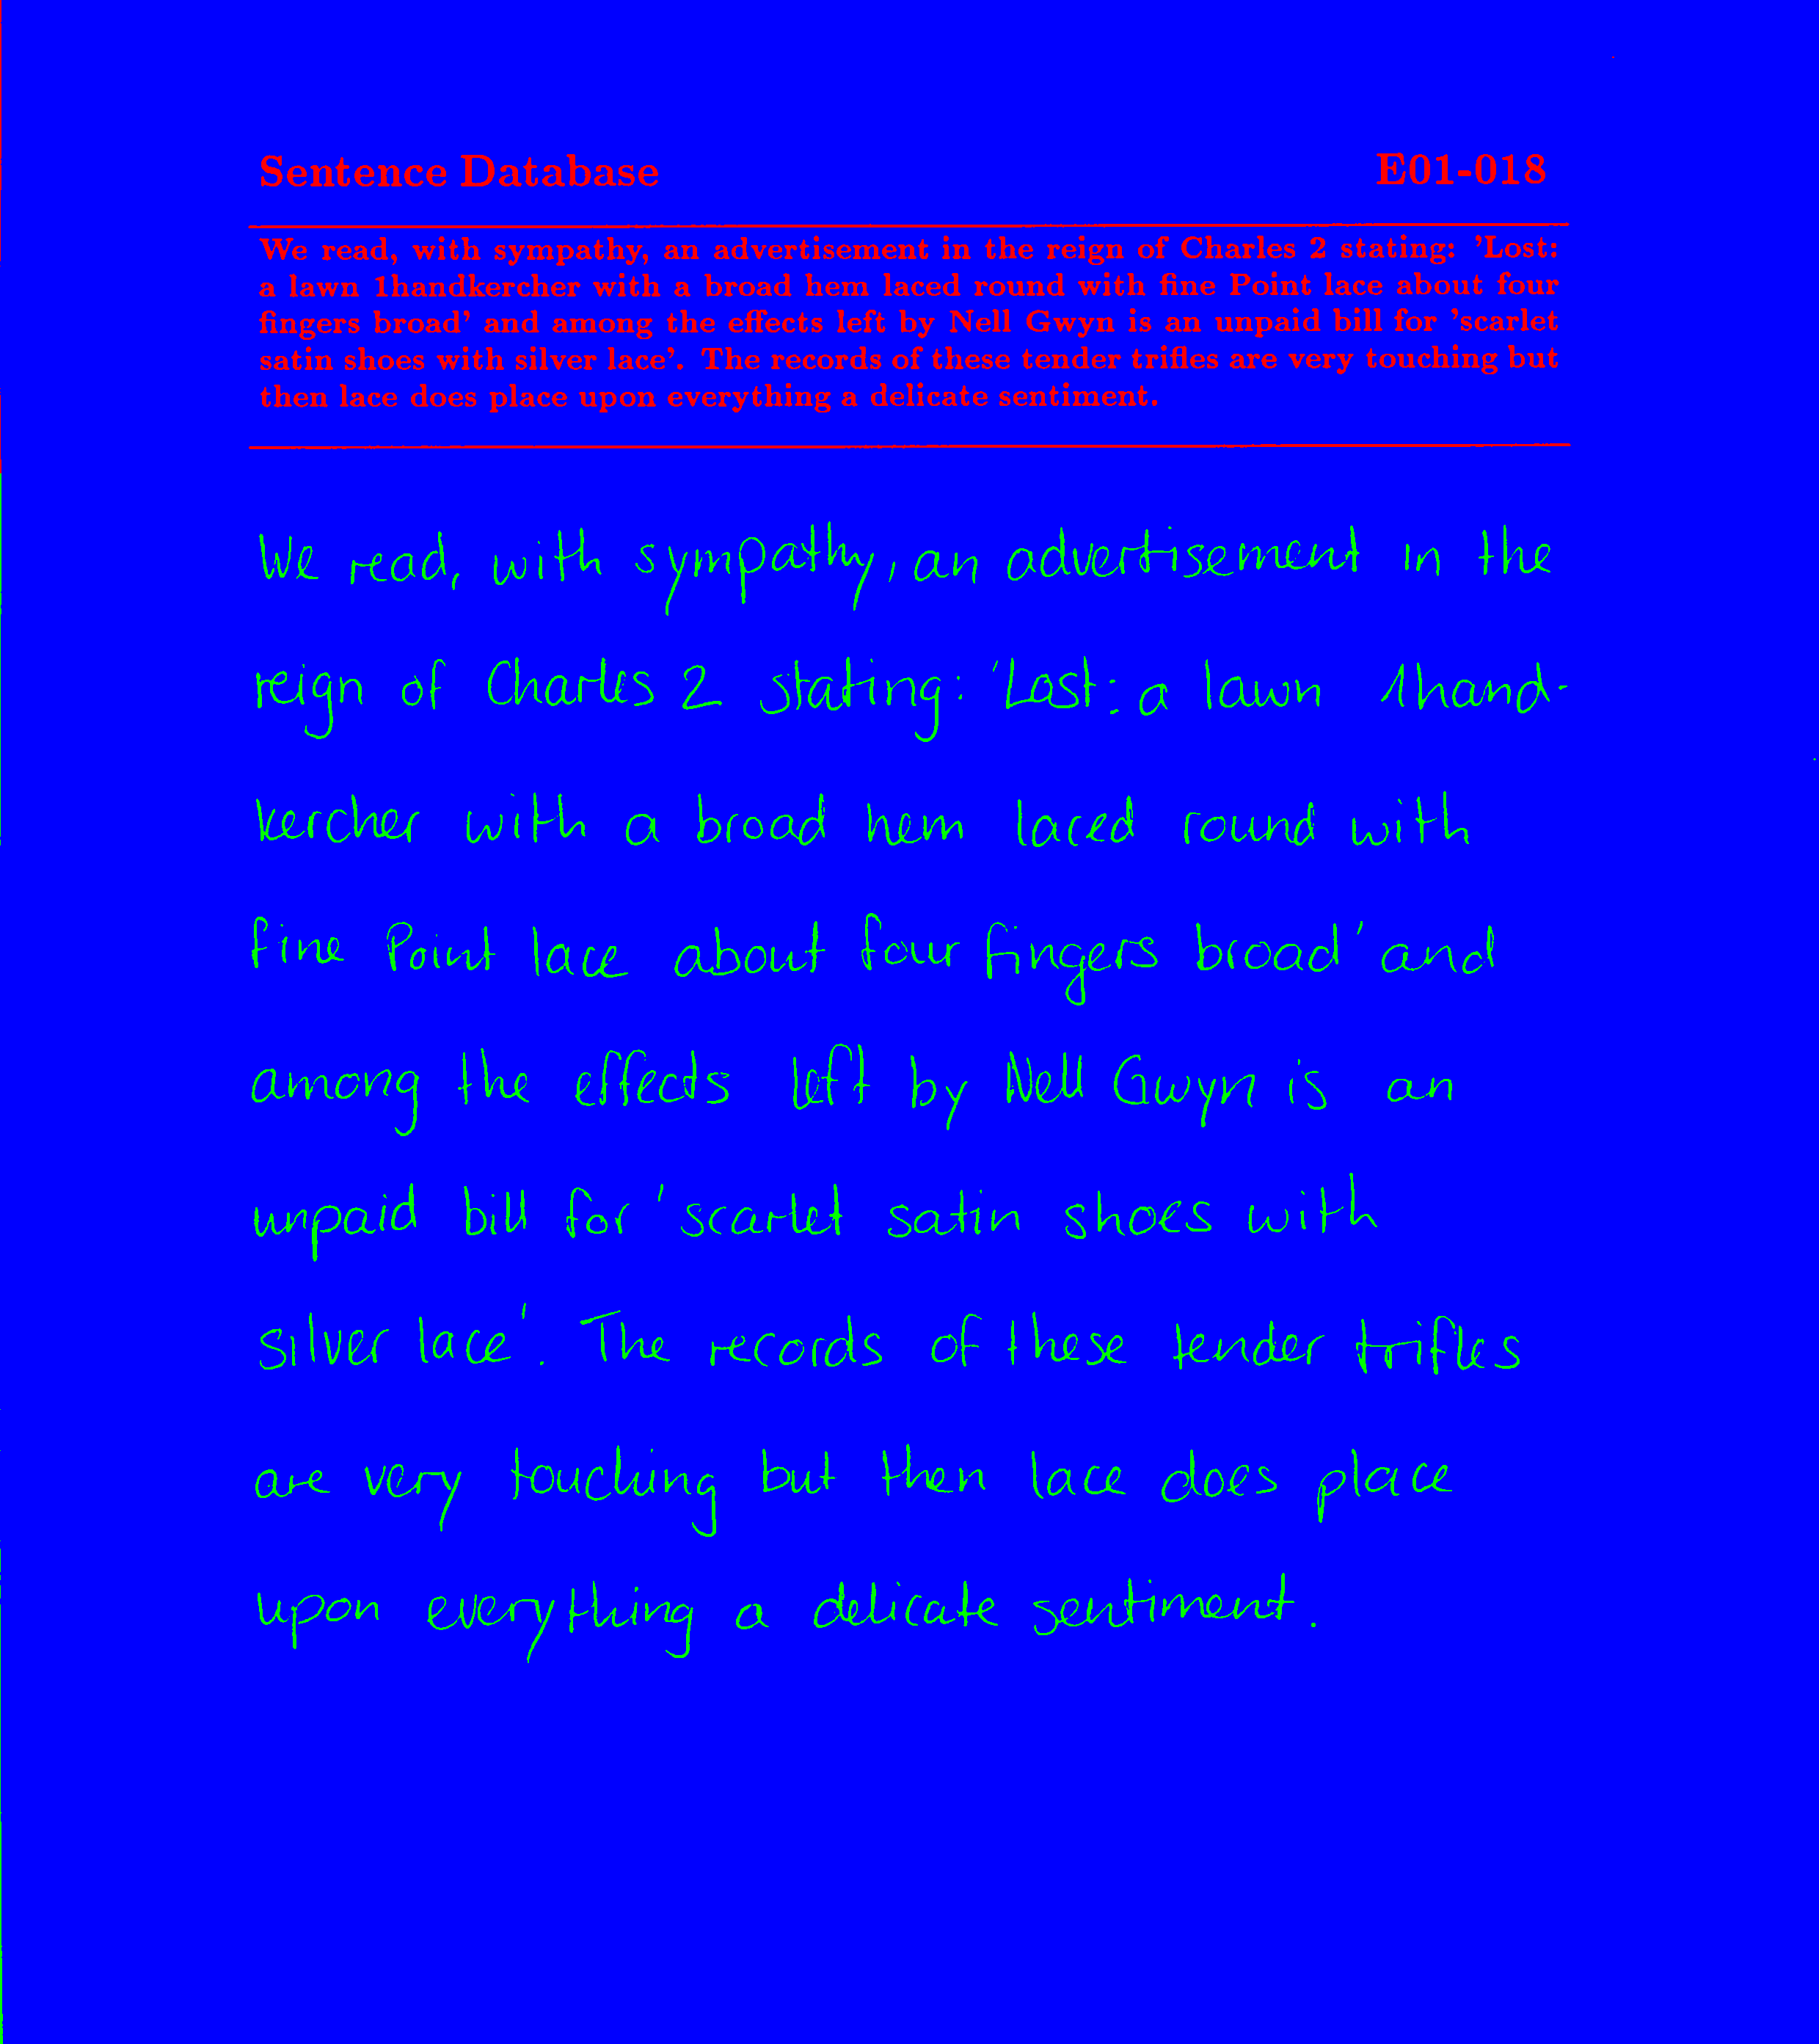 Sentence Database E01-018
We read, with sympathy, an advertisement in the reign of Charles 2 stating: 'Lost:
a lawn 1handkercher with a broad hem laced round with fine Point lace about four
fingers broad' and among the effects left by Nell Gwyn is an unpaid bill for 'scarlet
satin shoes with silver lace'. The records of these tender trifles are very touching but
then lace does place upon everything a delicate sentiment.
We read, with sympathy, an advertisement in the
reign of Charles 2 stating: 'Lost: a lawn 1hand-
kercher with a broad hem laced round with
fine Point lace about four fingers broad' and
among the effects left by Nell Gwyn is an
unpaid bill for 'scarlet satin shoes with
silver lace'. The records of these tender trifles
are very touching but then lace does place
upon everything a delicate sentiment.